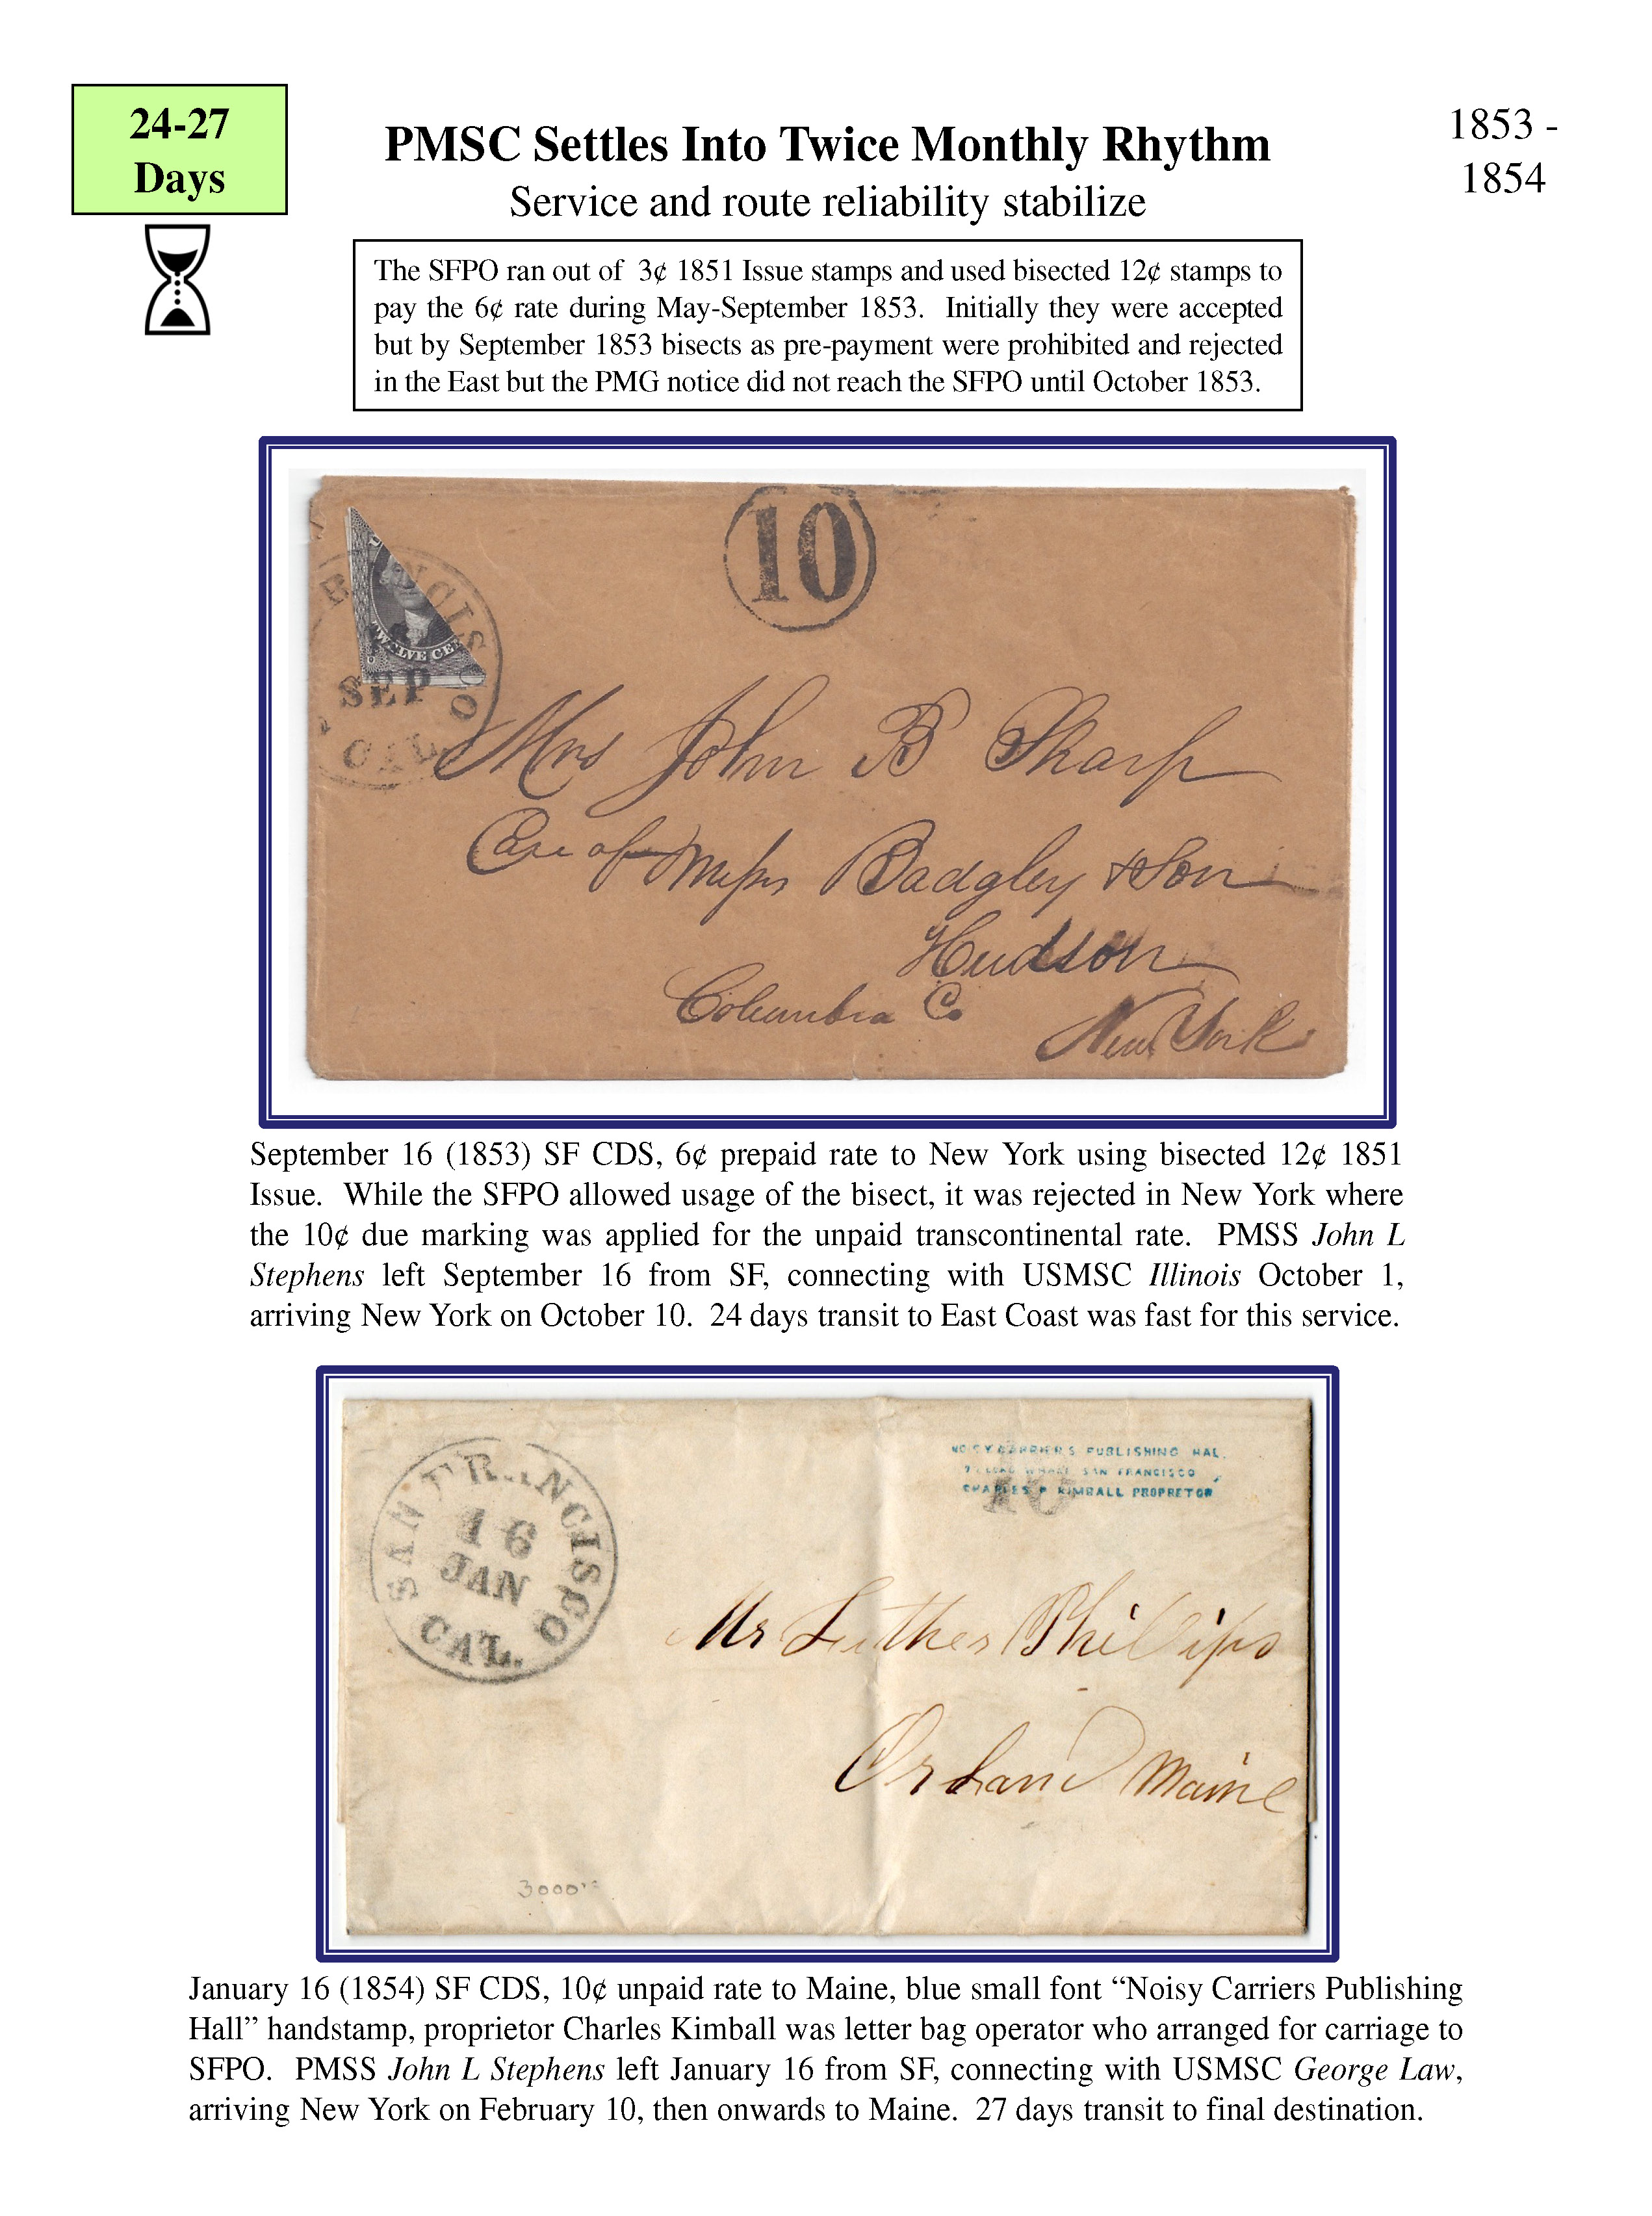 24-27
Days
PMSC Settles Into Twice Monthly Rhythm
Service and route reliability stabilize
1853 -
1854
The SFPO ran out of 3¢ 1851 Issue stamps and used bisected 12¢ stamps to
pay the 6¢ rate during May-September 1853. Initially they were accepted
but by September 1853 bisects as pre-payment were prohibited and rejected
in the East but the PMG notice did not reach the SFPO until October 1853.
10
NCISCO
TWELVE CE
SEP
CAL
Mrs John B Sharp
Care of Messrs Badgley & Son
Hudson
Columbia Co
New York
September 16 (1853) SF CDS, 6¢ prepaid rate to New York using bisected 12¢ 1851
Issue. While the SFPO allowed usage of the bisect, it was rejected in New York where
the 10¢ due marking was applied for the unpaid transcontinental rate. PMSS John L
Stephens left September 16 from SF, connecting with USMSC Illinois October 1,
arriving New York on October 10. 24 days transit to East Coast was fast for this service.
SAN FRANCISCO
16
JAN
CAL.
NOISY CARRIERS PUBLISHING HAL
WHARF SAN FRANCISCO
CHARLES P KIMBALL PROPRETOR
10
Mr Luther Phillips
Orland Maine
3000
January 16 (1854) SF CDS, 10¢ unpaid rate to Maine, blue small font “Noisy Carriers Publishing
Hall” handstamp, proprietor Charles Kimball was letter bag operator who arranged for carriage to
SFPO. PMSS John L Stephens left January 16 from SF, connecting with USMSC George Law,
arriving New York on February 10, then onwards to Maine. 27 days transit to final destination.